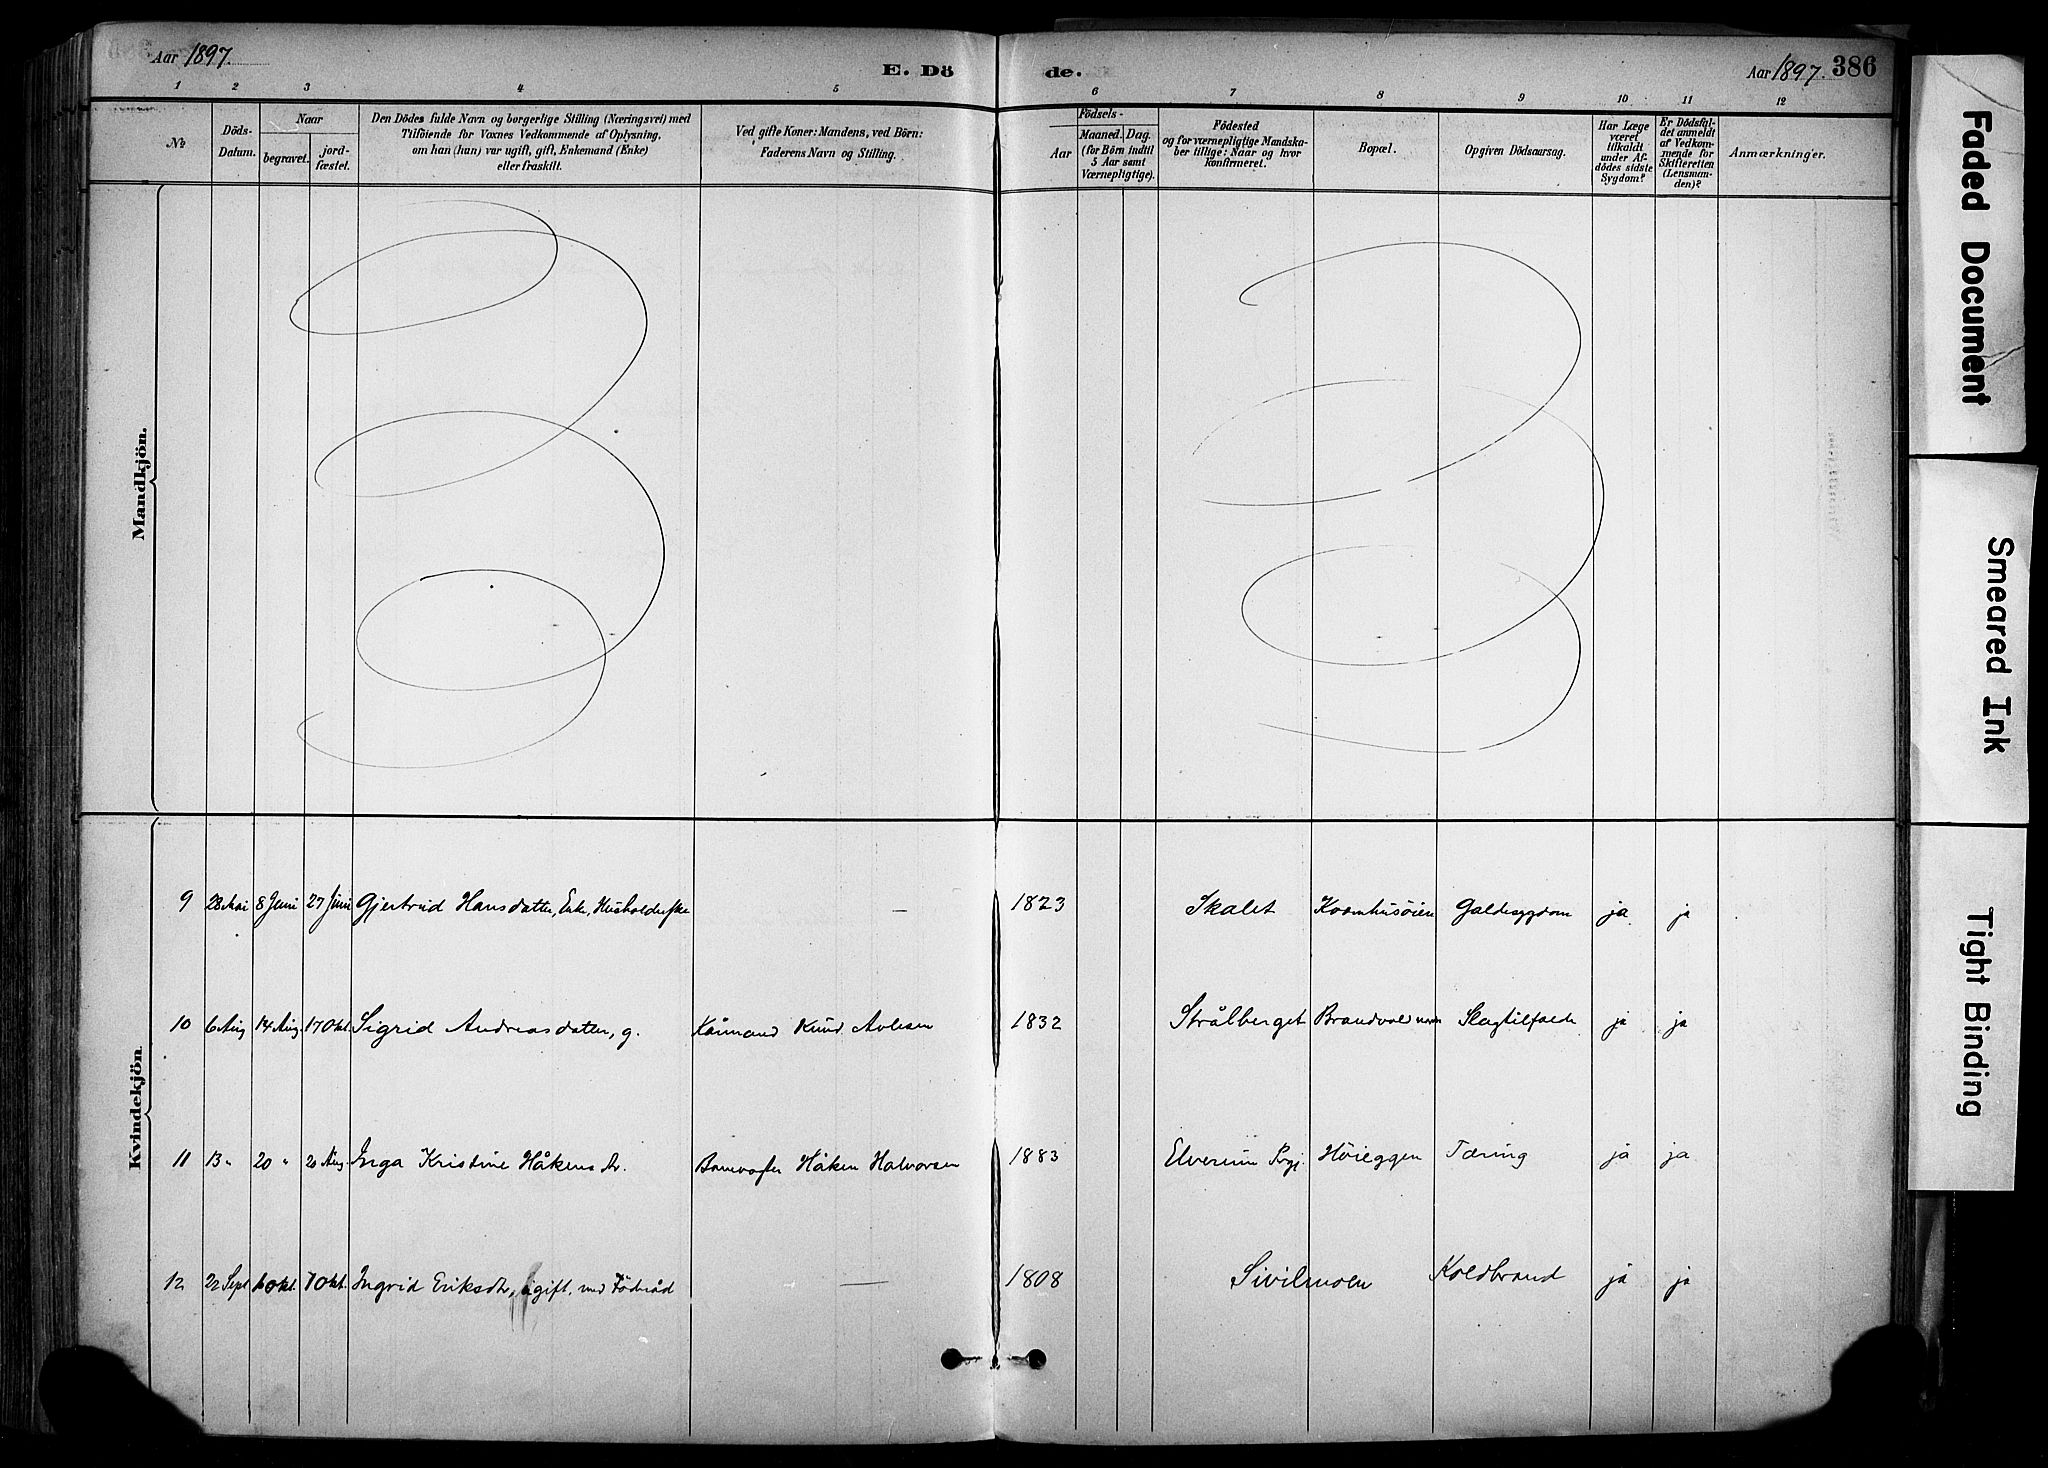 Aar 1897.
E. Dö
de.
Aar 1897. 386
1 2 3 4 5 6 7 8 9 10 11 12
№
Döds-
Datum.
Naar
begravet.
jord-
fæstet.
Den Dödes fulde Navn og borgerlige Stilling (Næringsvei) med
Tilföiende for Voxnes Vedkommende af Oplysning,
om han (hun) var ugift, gift, Enkemand (Enke)
eller fraskilt.
Ved gifte Koner: Mandens, ved Börn:
Faderens Navn og Stilling.
Födsels-
Aar
Maaned. Dag.
(for Börn indtil
5 Aar samt
Værnepligtige).
Födested
og for værnepligtige Mandska-
ber tillige: Naar og hvor
konfirmeret.
Bopæl.
Opgiven Dödsaarsag.
Har Læge
været
tilkaldt
under Af-
dödes sidste
Sygdom?
Er Dödsfal-
det anmeldt
af Vedkom-
mende for
Skifteretten
(Lensman-
den)?
Anmærkninger.
Mandkjön.
Kvindekjön.
9 28 Mai 8 Juni 27 Juni Gjertrud Hansdatter, Enke, — 1823 Skalet Galdesygdom ja ja
10 6 Aug 14 Aug. 17 Okt. Sigrid Andreasdatter, g. Kårmand Knud 1832 Strålberget Brandvold Slagtilfælde ja ja
11 13 " 20 " 20 Aug. Inga Kristine Håkensdr. Banevogter Håken Halvorsen 1883 Elverum Prgj. Höieggen Tæring ja ja
12 22 Sept 10 Okt. Ingrid Eriksdtr, ugift, med Föderåd — 1808 Sivilmoen Koldbrand ja ja
Faded Document
Smeared Ink
Tight Binding